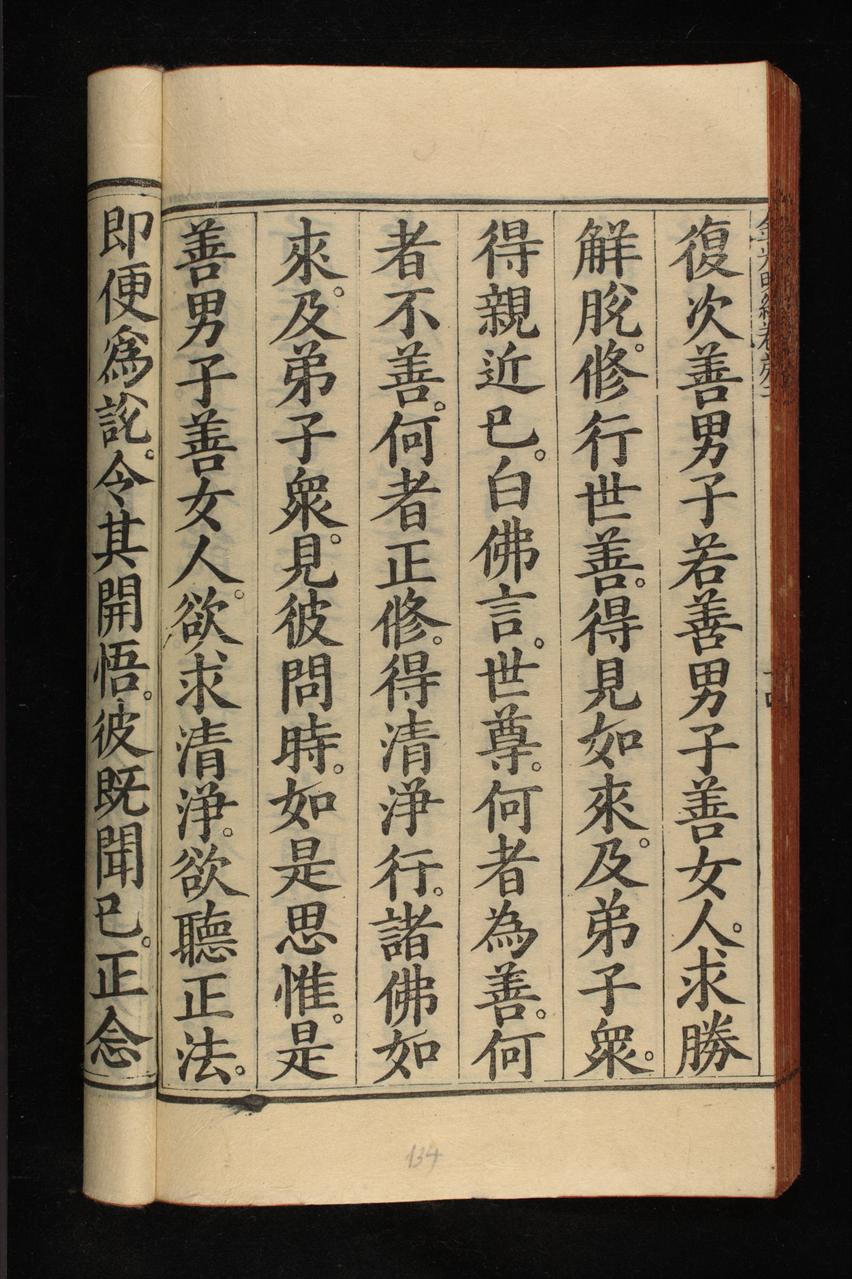 復次善男子若善男子善女人。求勝
解脫。修行世善。得見如來。及弟子眾。
得親近已。白佛言。世尊。何者為善。何
者不善。何者正修。得清淨行。諸佛如
來。及弟子眾。見彼問時。如是思惟。是
善男子善女人。欲求清淨。欲聽正法。
即便爲說。令其開悟。彼既聞已。正念
134